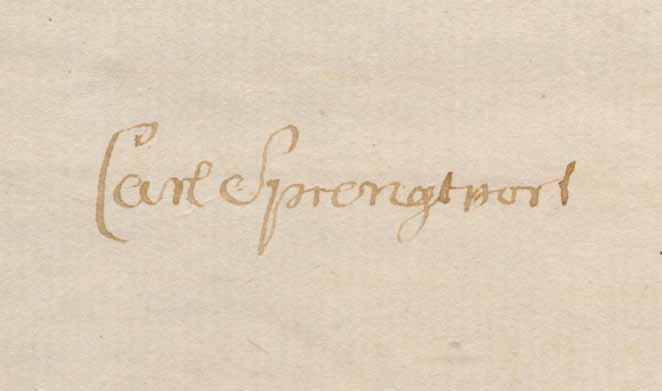 Carl Sprengtport